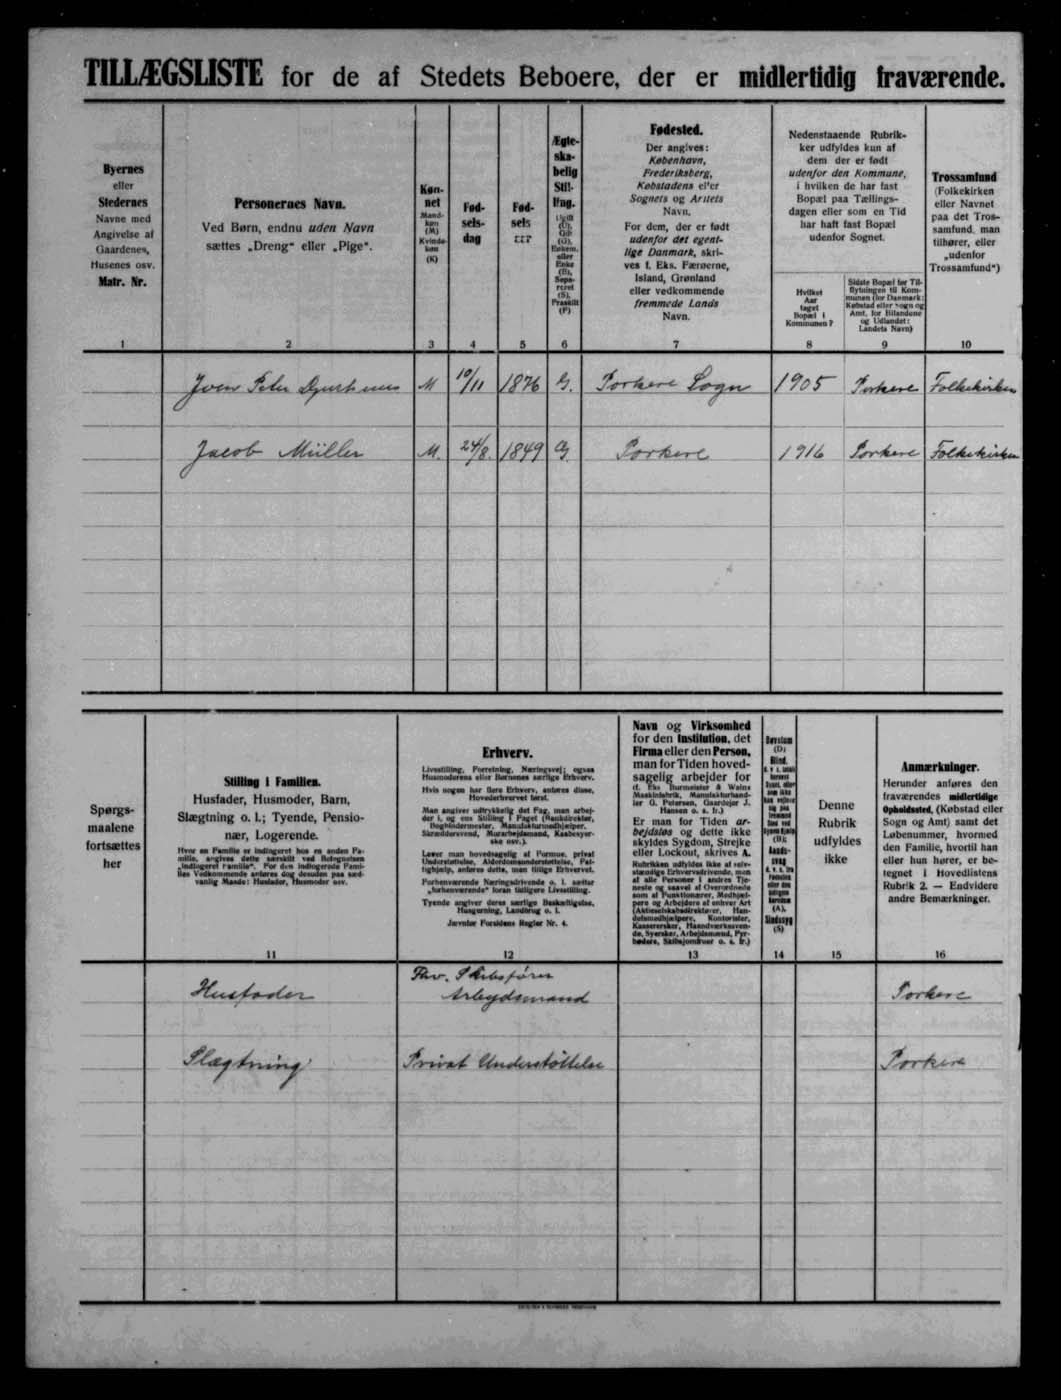 TILLÆGSLISTE for de af Stedets Beboere, der er midlertidig fraværende.
Byernes
eller
Stedernes
Navne med
Angivelse af
Gaardenes,
Husenes osv.
Matr. Nr.
Personernes Navn.
Ved Børn, endnu uden Navn
sættes „Dreng“ eller „Pige“.
Køn-
net
Mand-
køn
(M)
Kvinde-
køn
(K)
Fød-
sels-
dag
Fød-
sels
Ægte-
ska-
belig
Stil-
ling.
Ugift
(U),
Gift
(G),
Enkem.
eller
Enke
(E),
Sepa-
reret
(S),
Fraskilt
(F)
Fødested.
Der angives:
København,
Frederiksberg,
Købstadens eller
Sognets og Amtets
Navn.
For dem, der er født
udenfor det egent-
lige Danmark, skri-
ves f. Eks. Færøerne,
Island, Grønland
eller vedkommende
fremmede Lands
Navn.
Nedenstaaende Rubrik-
ker udfyldes kun af
dem der er født
udenfor den Kommune,
i hvilken de har fast
Bopæl paa Tællings-
dagen eller som en Tid
har haft fast Bopæl
udenfor Sognet.
Hvilket
Aar
taget
Bopæl i
Kommunen?
Sidste Bopæl før Til-
flytningen til Kom-
munen (for Danmark:
Købstad eller Sogn og
Amt, for Bilandene
og Udlandet:
Landets Navn)
Trossamfund
(Folkekirken
eller Navnet
paa det Tros-
samfund, man
tilhører, eller
„udenfor
Trossamfund“)
1 2 3 4 5 6 7 8 9 10
Joen Peter Djurhuus M 10/11 1876 G. Porkere Sogn 1905 Porkere Folkekirken
Jacob Müller M. 24/8. 1849 G. Porkere 1916 Porkere Folkekirken
Spørgs-
maalene
fortsættes
her
Stilling i Familien.
Husfader, Husmoder, Barn,
Slægtning o. l.; Tyende, Pensio-
nær, Logerende.
Hvor en Familie er indlogeret hos en anden Fa-
milie, angives dette særskilt ved Betegnelsen
„Indlogeret Familie“. For den indlogerede Fami-
lies Vedkommende anføres dog desuden paa sæd-
vanlig Maade: Husfader, Husmoder osv.
Erhverv.
Livsstilling, Forretning, Næringsvej; ogsaa
Husmoderens eller Børnenes særlige Erhverv.
Hvis nogen har flere Erhverv, anføres disse,
Hovederhvervet først.
Man angiver udtrykkelig det Fag, man arbej-
der i, og ens Stilling i Faget (Bankdirektør,
Bogbindermester, Manufakturmedhjælper,
Skræddersvend, Murarbejdsmand, Kasbesyer-
ske osv.).
Lever man hovedsagelig af Formue, privat
Understøttelse, Alderdomsunderstøttelse, Fat-
tighjælp, anføres dette, men tillige Erhvervet.
Forhenværende Næringsdrivende o. l. sætter
„forhenværende“ foran tidligere Livsstilling.
Tyende angiver deres særlige Beskæftigelse,
Husgerning, Landbrug o. l.
Jævnfør Forsidens Regler Nr. 4.
Navn og Virksomhed
for den Institution, det
Firma eller den Person,
man for Tiden hoved-
sagelig arbejder for
(f. Eks Burmeister & Wains
Maskinfabrik, Manufakturhand-
ler G. Petersen, Gaardejer J.
Hansen o. s. fr.)
Er man for Tiden ar-
bejdsløs og dette ikke
skyldes Sygdom, Strejke
eller Lockout, skrives A.
Rubrikken udfyldes ikke af selv-
stændige Erhvervsdrivende, men
af alle Personer i andres Tje-
neste og saavel af Overordnede
som af Funktionærer, Medhjæl-
pere og Arbejdere af enhver Art
(Aktieselskabsdirektører, Han-
delsmedhjælpere, Kontorister,
Kasserersker, Haandværkssven-
de, Syersker, Arbejdsmænd, Fyr-
bødere, Skibsjomfruer o. s. fr.)
Døvstum
(D)
Blind,
(B);
Aands-
svag
(A),
Sindssyg
(S)
Denne
Rubrik
udfyldes
ikke
Anmærkninger.
Herunder anføres den
fraværendes midlertidige
Opholdssted, (Købstad eller
Sogn og Amt) samt det
Løbenummer, hvormed
den Familie, hvortil han
eller hun hører, er be-
tegnet i Hovedlistens
Rubrik 2. — Endvidere
andre Bemærkninger.
11 12 13 14 15 16
Fhv. Skibsfører
Husfader Arbejdsmand Porkere
Slægtning Privat Understøttelse Porkere